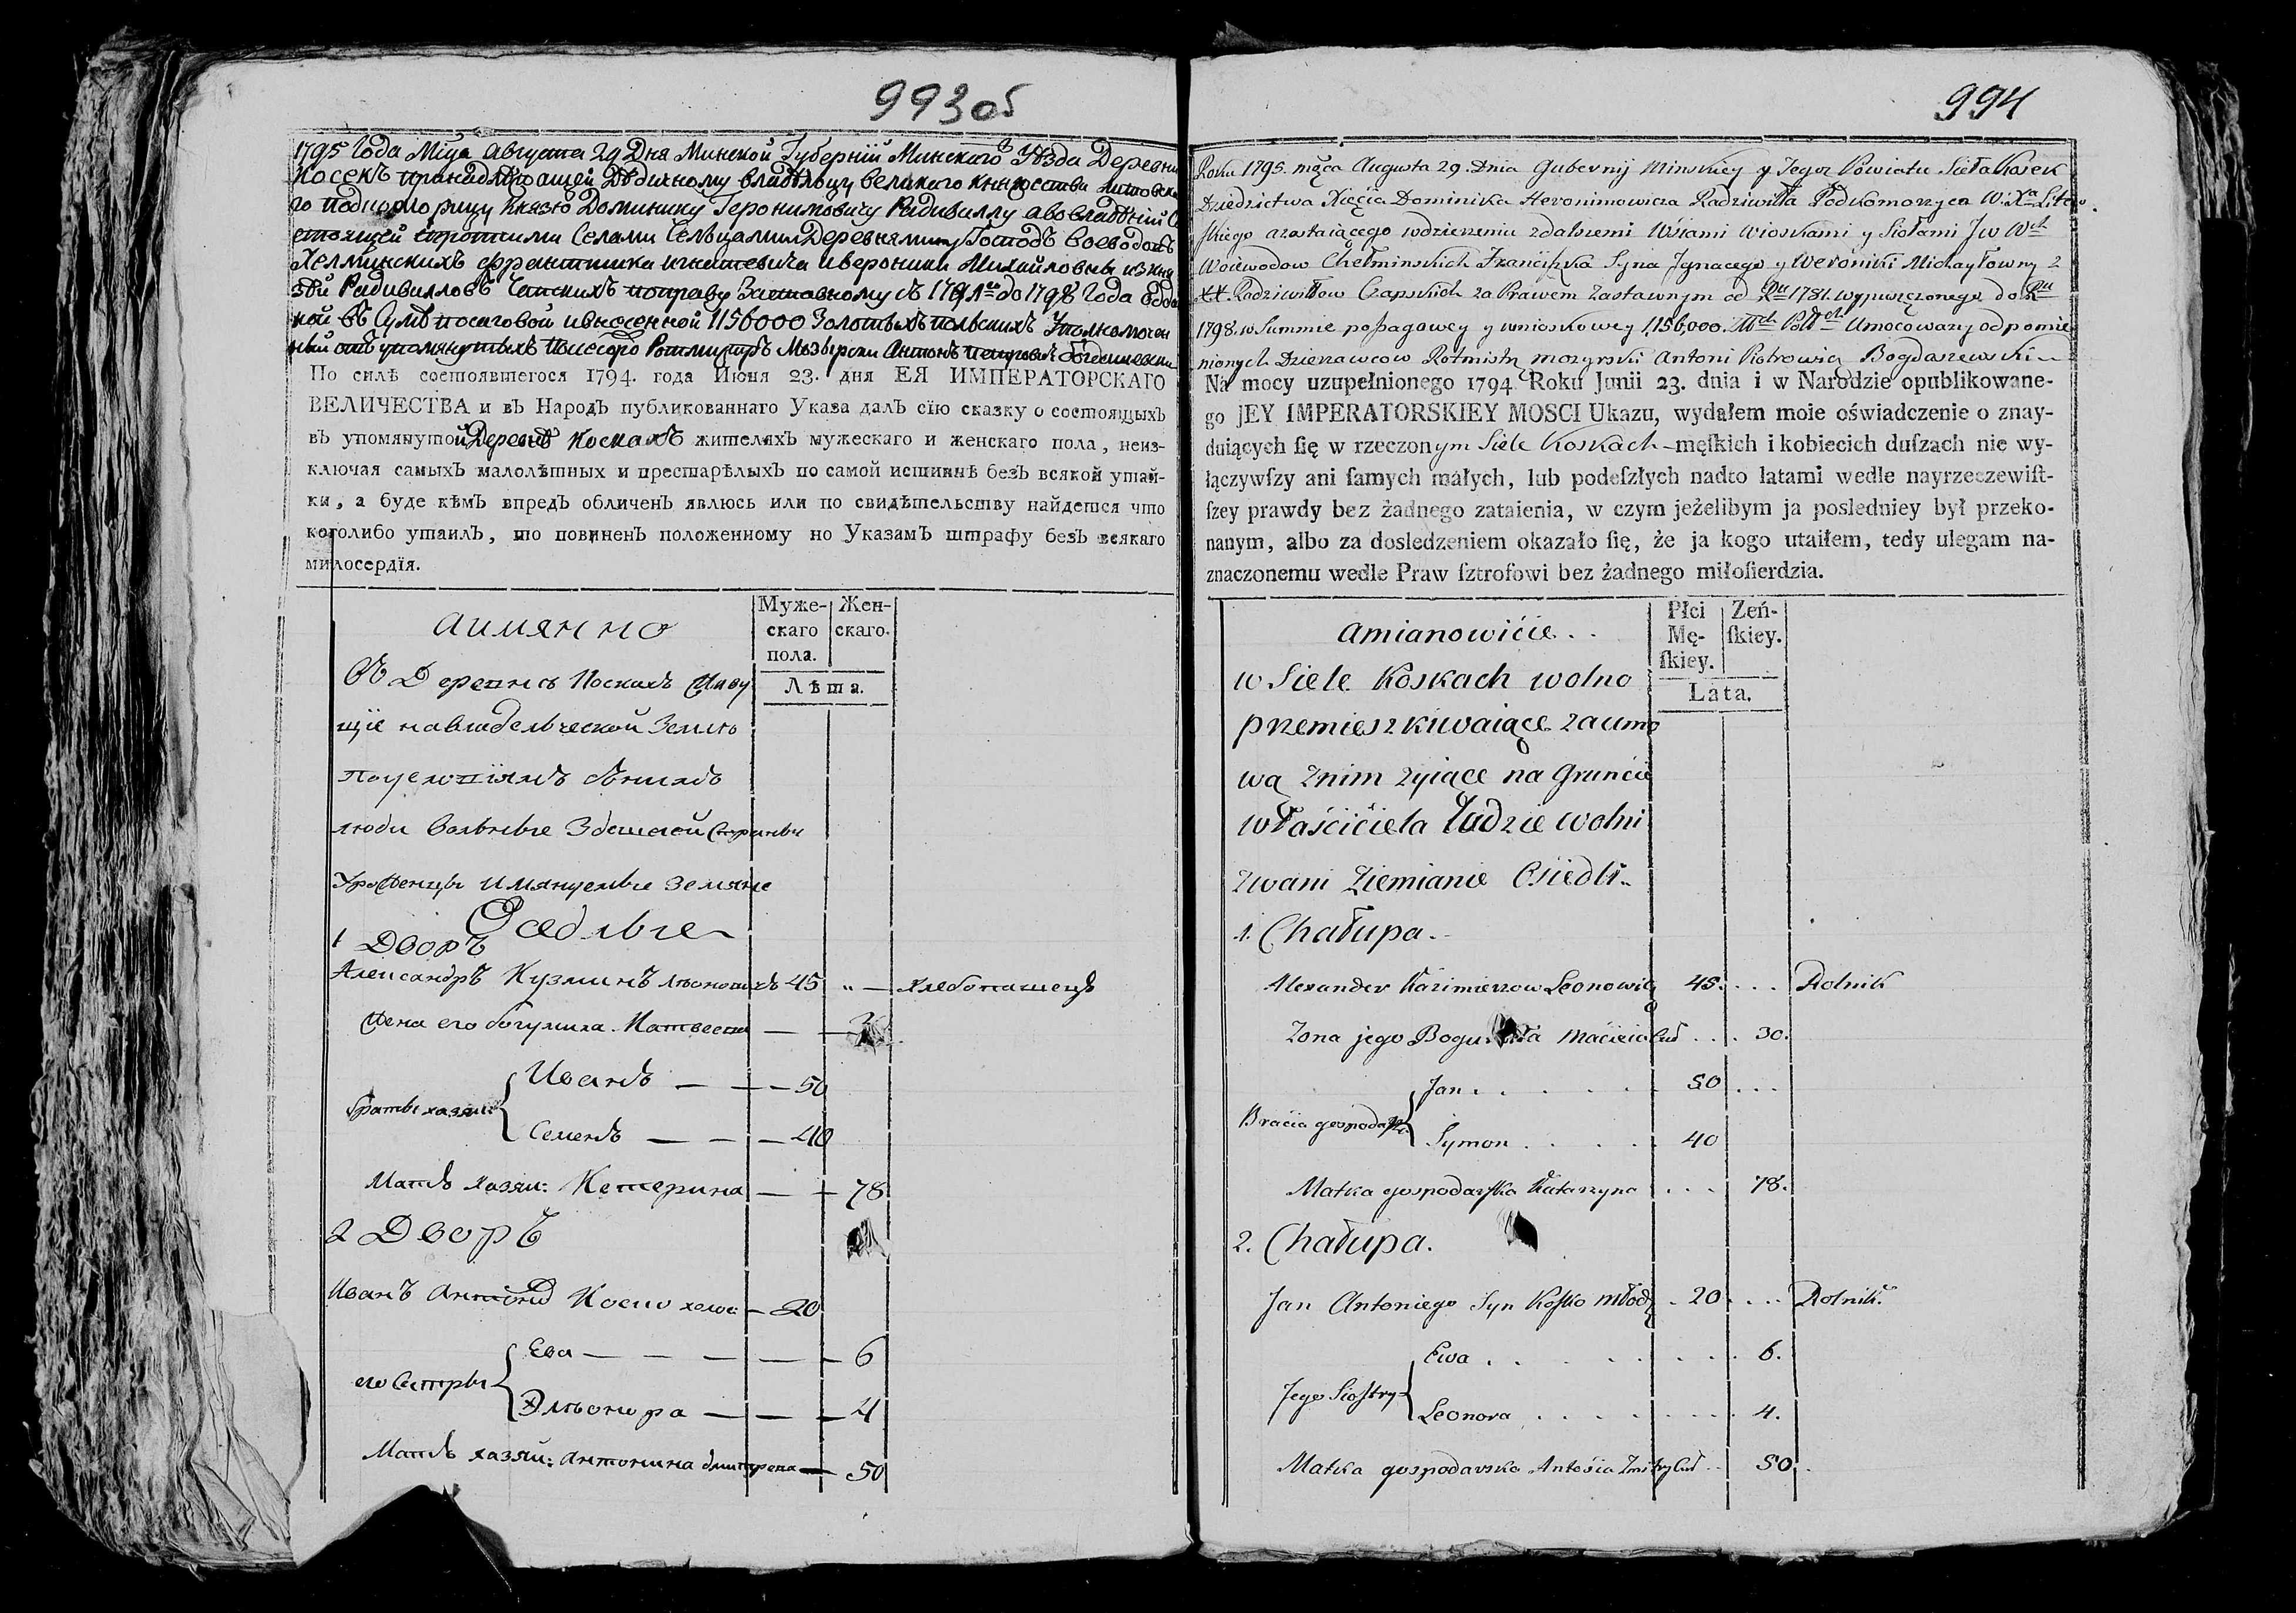 993об
1795 Года Мца Августа 29 Дня Минской Губернїи Минскаго Уѣзда Деревни
Косекъ принадлѣжащей Дѣдичному владѣльцу великаго княжества литовска
го подкоморицу Князю Доминику Геронимовичу Радивиллу а во владѣнїи
стоящей спротчими Селами Сельцами и Деревнями Господъ воеводовъ
Хелминскихъ Франтишка игнатевича и вероники Михайловны изкня
зей Радивилловъ Чапскихъ поправу Заставному съ 1781го до 1798 Года
ной въ Сумѣ посаговой и вносенной 1156000 Золотыхъ польскихъ Уполномочен
ный отъ упомянутыхъ Ротмистръ Мозырски Антонъ петровичъ Богдашевски
По силѣ состоявшегося 1794. года Июня 23. дня ЕЯ ИМПЕРАТОРСКАГО
ВЕЛИЧЕСТВА и въ Народъ публикованнаго Указа далъ сїю сказку о состоящыхъ
въ упомянутой Деревнѣ Коскахъ жителяхъ мужескаго и женскаго пола, неиз-
ключая самыхъ малолѣтныхъ и престарѣлыхъ по самой истиннѣ безъ всякой утай-
ки, а буде кѣмъ впредъ обличенъ явлюсь или по свидѣтельству найдется что
коголибо утаилъ, то повиненъ положенному по Указамъ штрафу безъ всякаго
милосердїя.
аимянно
Муже-
скаго
пола.
Жен-
скаго.
Лѣта.
Въ Деревнѣ Коскахъ Живу
щїе навладельческой Землѣ
люди вольные Здешной Стороны
Уроженцы имянуемые земяне
Оседлые
1 Дворъ
Александръ Кузминъ Леоновичъ 45 " — хлебопашецъ
Жена его богумила Матвеева —
братья хозяи: Иванъ — — 50
Семенъ — — 40
Мать хозяи: Катерина — 78
2 Дворъ
Иванъ Антоновъ Коско холос: — 20
его Сестры Ева — — — 6
Элеонора — — — 4
Мать хозяй: антонина дмитрева — 50
994
Roku 1795. męca Augusta 29. Dnia Gubernij Minskiey y Jegoz Powiatu Sieła Kosek
Dziedzictwa Xięcia Dominika Heronimowicza Radziwiłła Podkomorzyca W: Xa Litew
skiego azostaiącego wdzierzeniu zdalszemi Wsiami Wioskami y Siołami J W Wch
Woiewodow Chełminskich Franciszka Syna Jgnacego y Weroniki Michayłowny z
XX. Radziwiłłow Czapskich za Prawem Zastawnym od Ru 1781. wypuszczonego do Ru
1798. w Summie possagowey y wnioskowey 1,156,000. Umocowany od pomie
nionych Dzierzawcow Rotmistrz mozyrski Antoni Piotrowicz Bogdaszewski
Na mocy uzupełnionego 1794 Roku Junii 23. dnia i w Narodzie opublikowane-
go JEY IMPERATORSKIEY MOSCI Ukazu, wydałem moie oświadczenie o znay-
duiących ſię w rzeczonym Siele Koskach męſkich i kobiecich duſzach nie wy-
łączywſzy ani ſamych małych, lub podeſzłych nadto latami wedle nayrzeczewiſt-
ſzey prawdy bez żadnego zataienia, w czym jeżelibym ja posledniey był przeko-
nanym, albo za dosledzeniem okazało ſię, że ja kogo utaiłem, tedy ulegam na-
znaczonemu wedle Praw ſztrofowi bez żadnego miłoſierdzia.
amianowićie..
Płci
Mę-
ſkiey.
Zeń-
ſkiey.
Lata.
w Siele Koskach wolno
przemieszkiwaiące zaumo
wą znim zyiące na Grunćie
właśćićiela ludzie wolni
zwani Ziemianie Osiedli..
1. Chałupa.
Alexander Kazimierzow Leonowicz 45. . . . Rolnik
Zona jego Bogumiła . . . 30.
Braćia gospodarza Jan . . . . 50 . . .
Symon . . . . 40
Matka gospodarska Katarzyna . . . 78.
2. Chałupa.
Jan Antoniego Syn Kosko młodz . 20 . . . Rolnik.
Jego Siostry Ewa . . . . . . 6.
Leonora . . . . . . 4.
Matka gospodarska Antosia . . 50.